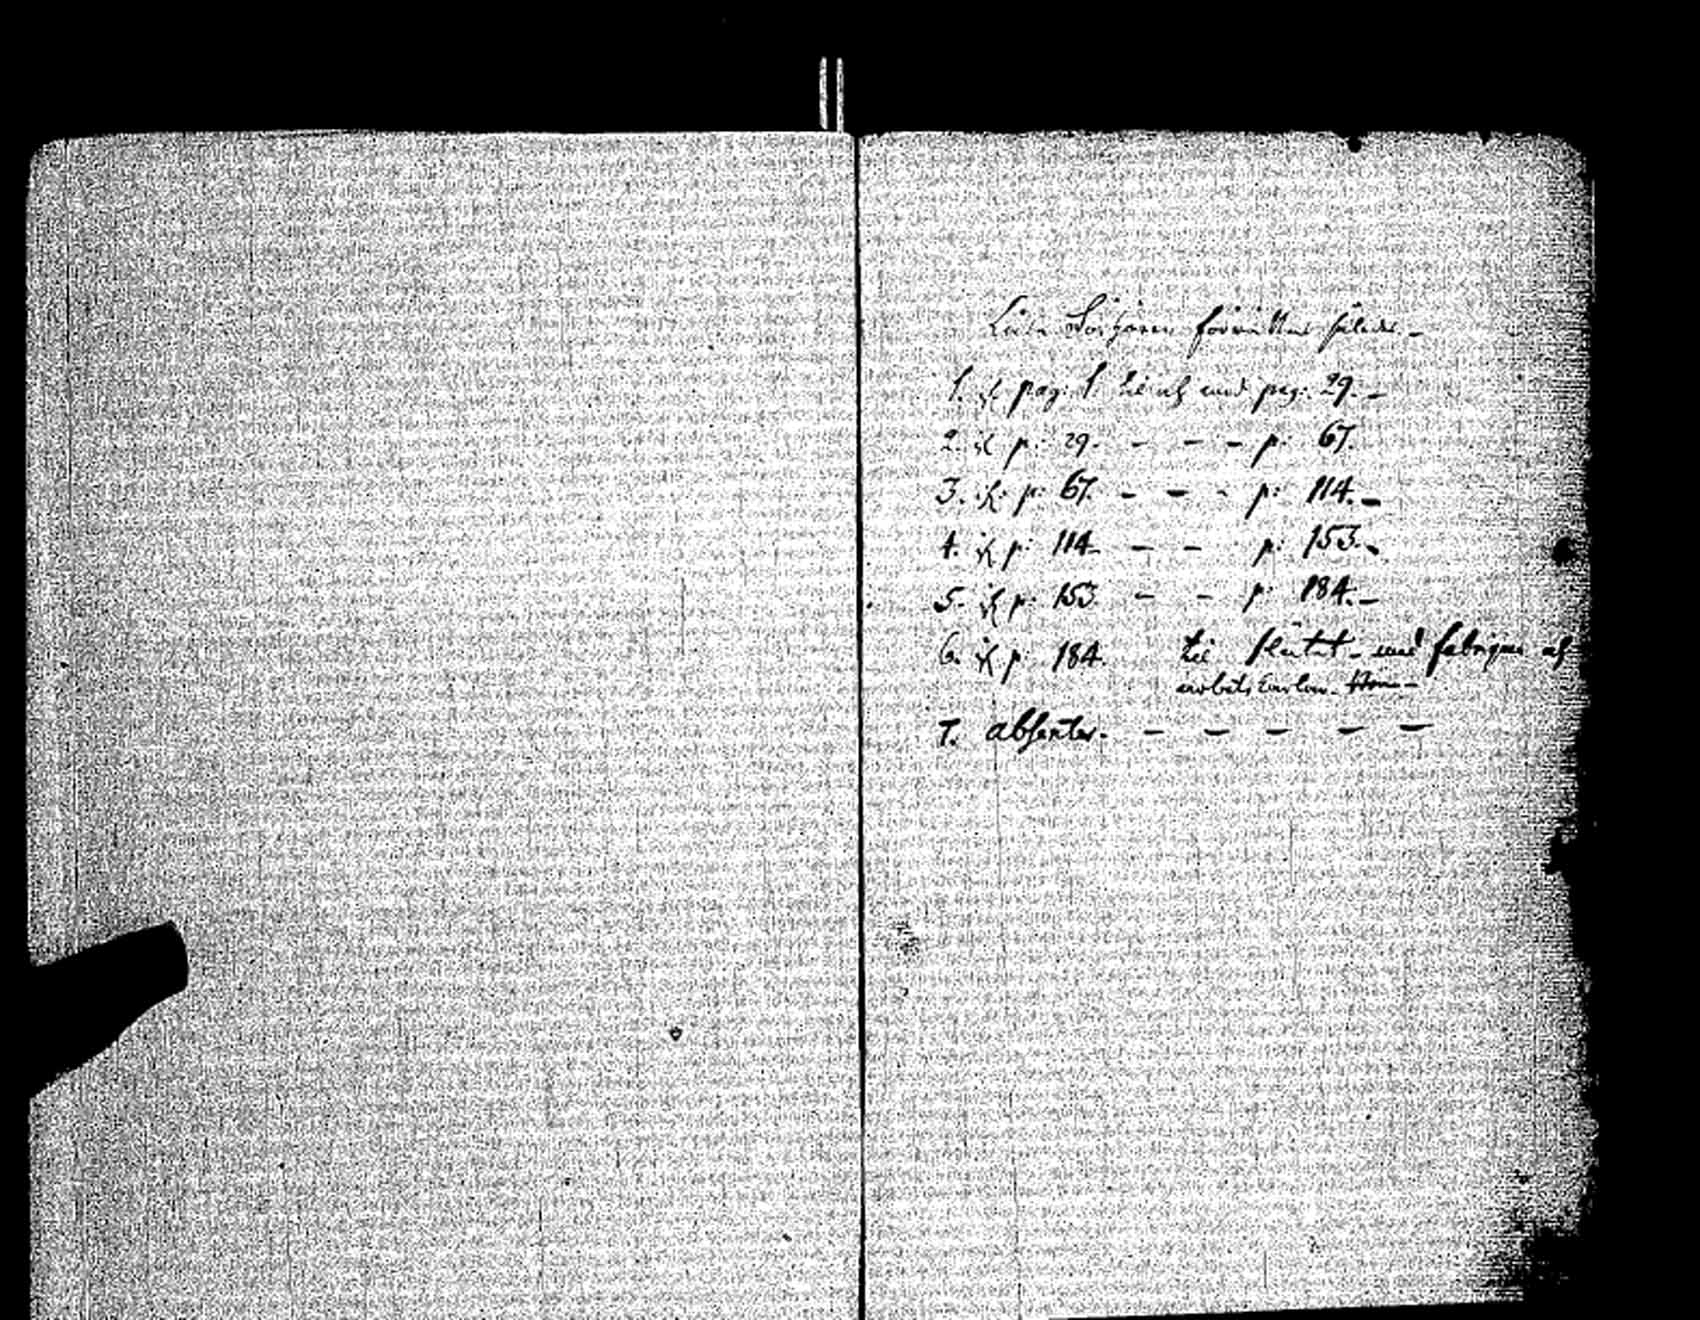 Läse Förhören förrättas således -
1. st pag: 1. til och med pag: 29. -
2. st p: 29. - - - p: 67.
3. st p: 67. - - - p: 114. -
4. st p: 114. - - p: 153. -
5. st p: 153. - - p: 184. -
6. st p: 184. til slutet - med fabriqen och
arbets
7. absenter. - - - - -